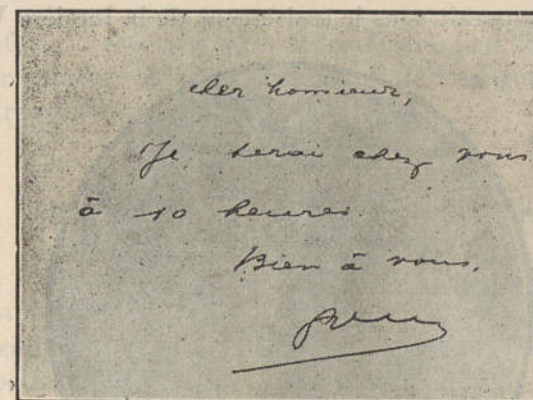 cher Monsieur,
Je serai chez vous
à 10 heures.
Bien à vous.